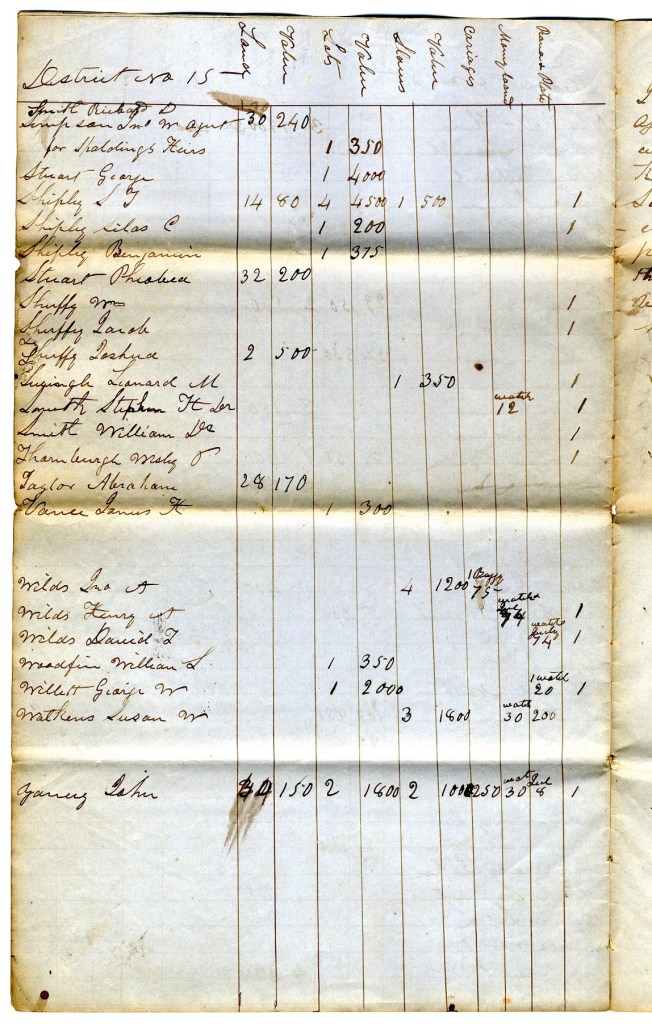 Land Value Lots Value Slaves Value Cariages
District No 15
Smith Richard D
Simpson Jno W Agent 30 240
for Spaldings Heirs 1 350
Stuart George 1 4000
Shipley S J 14 80 4 4500 1 500 1
Shipley Silas C 1 200 1
Shipley Benjamin 1 375
Stuart 32 200
Shuffy Wm 1
Shuffy Jacob 1
Shuffy Joshua 2 500
Lenard M 1 350 1
watch
Smith Stephen H Dr 12 1
Smith William Dr 1
Thornburgh P 1
Taylor Abraham 28 170
Vance James H 1 300
1 Bagy
Wilds Jno A 4 1200 75
watch
Wilds Henry A 74 1
watch
Wilds David 74 1
Woodfin William S 1 350
1 watch
Willett George W 1 2000 20 1
watch
Watkins Susan W 3 1800 30 200
wat
Young John 34 150 2 1800 2 1000 250 30 8 1